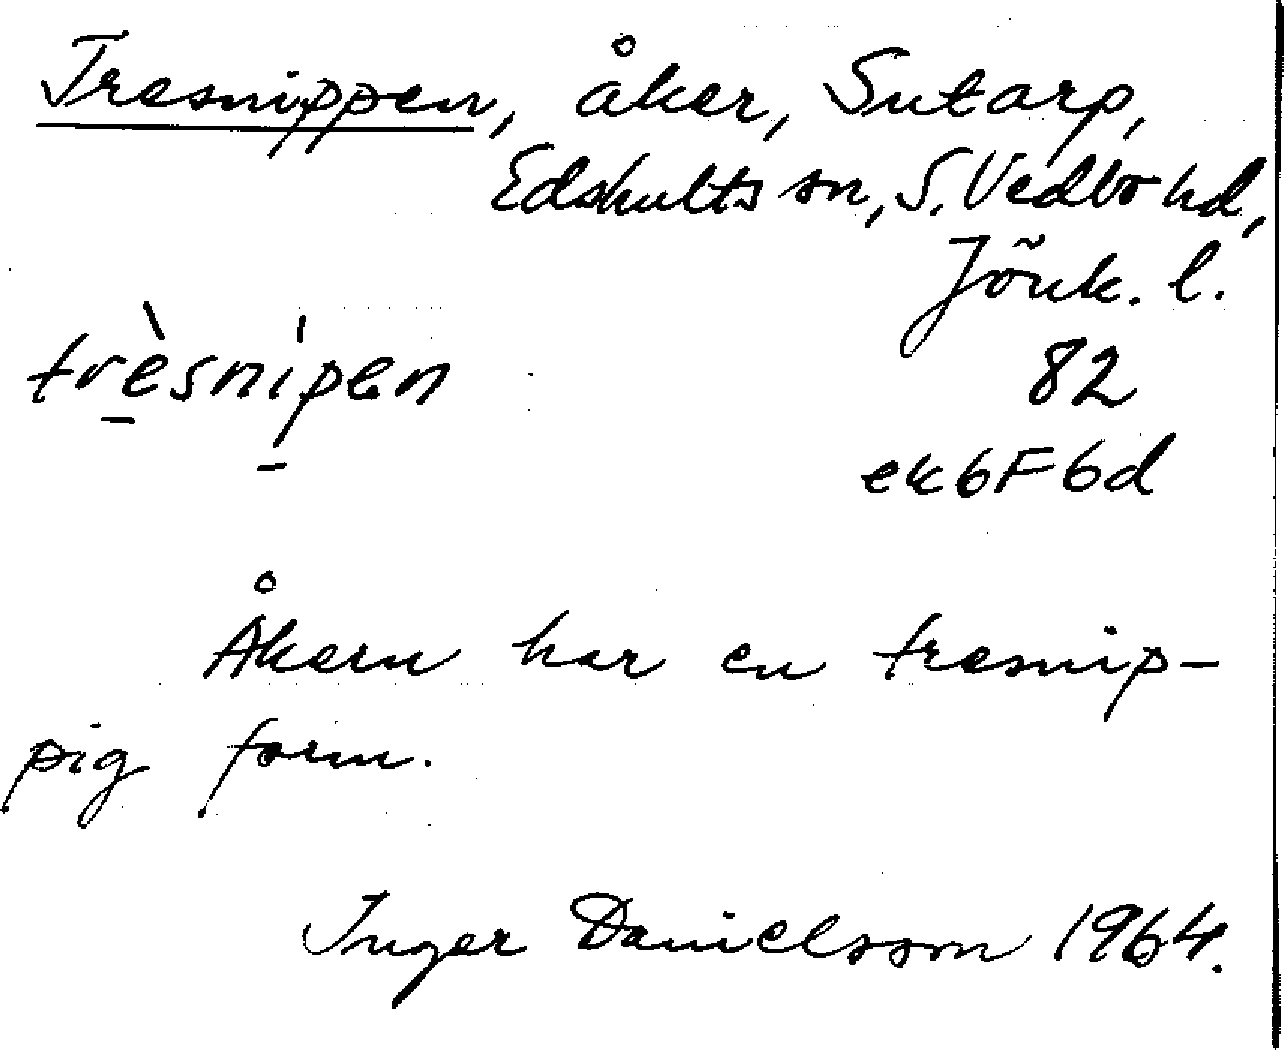 Tresnippen, åker, Sutarp,
Edshults sn, S. Vedbo hd,
Jönk. l.
trèsnípen
82
ek6F6d
Åkern har en tresnip-
pig form.
Inger Danielsson 1964.